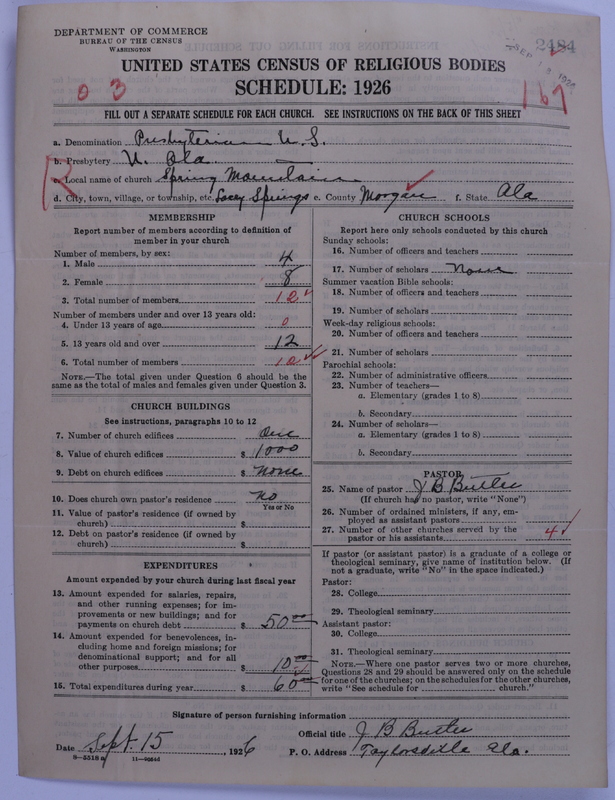 DEPARTMENT OF COMMERCE
BUREAU OF THE CENSUS
WASHINGTON
2484
UNITED STATES CENSUS OF RELIGIOUS BODIES
SCHEDULE: 1926
0 3
167
FILL OUT A SEPARATE SCHEDULE FOR EACH CHURCH. SEE INSTRUCTIONS ON THE BACK OF THIS SHEET
a. Denomination Presbyterian U. S.
b. Presbytery N. Ala.
c. Local name of church Spring Mountain
d. City, town, village, or township, etc. Lacey Springs e. County Morgan f. State Ala
MEMBERSHIP
Report number of members according to definition of
member in your church
Number of members, by sex:
1. Male 4
2. Female 8
3. Total number of members 12
Number of members under and over 13 years old:
4. Under 13 years of age 0
5. 13 years old and over 12
6. Total number of members 12
NOTE.—The total given under Question 6 should be the
same as the total of males and females given under Question 3.
CHURCH BUILDINGS
See instructions, paragraphs 10 to 12
7. Number of church edifices One
8. Value of church edifices $ 1000
9. Debt on church edifices $ None
10. Does church own pastor's residence No
Yes or No
11. Value of pastor's residence (if owned by
church) $
12. Debt on pastor's residence (if owned by
church) $
EXPENDITURES
Amount expended by your church during last fiscal year
13. Amount expended for salaries, repairs,
and other running expenses; for im-
provements or new buildings; and for
payments on church debt $ 50 00
14. Amount expended for benevolences, in-
cluding home and foreign missions; for
denominational support; and for all
other purposes $ 10 00
15. Total expenditures during year $ 60 00
CHURCH SCHOOLS
Report here only schools conducted by this church
Sunday schools:
16. Number of officers and teachers
17. Number of scholars None
Summer vacation Bible schools:
18. Number of officers and teachers
19. Number of scholars
Week-day religious schools:
20. Number of officers and teachers
21. Number of scholars
Parochial schools:
22. Number of administrative officers
23. Number of teachers—
a. Elementary (grades 1 to 8)
b. Secondary
24. Number of scholars—
a. Elementary (grades 1 to 8)
b. Secondary
PASTOR
25. Name of pastor J B Butler
(If church has no pastor, write "None")
26. Number of ordained ministers, if any, em-
ployed as assistant pastors
27. Number of other churches served by the
pastor or his assistants 4
If pastor (or assistant pastor) is a graduate of a college or
theological seminary, give name of institution below. (If
not a graduate, write "No" in the space indicated.)
Pastor:
28. College
29. Theological seminary
Assistant pastor:
30. College
31. Theological seminary
NOTE.—Where one pastor serves two or more churches,
Questions 28 and 29 should be answered only on the schedule
for one of the churches; on the schedules for the other churches,
write "See schedule for church."
Signature of person furnishing information
Official title J B Butler
Date Sept. 15 1926 P. O. Address Taylorsville Ala.